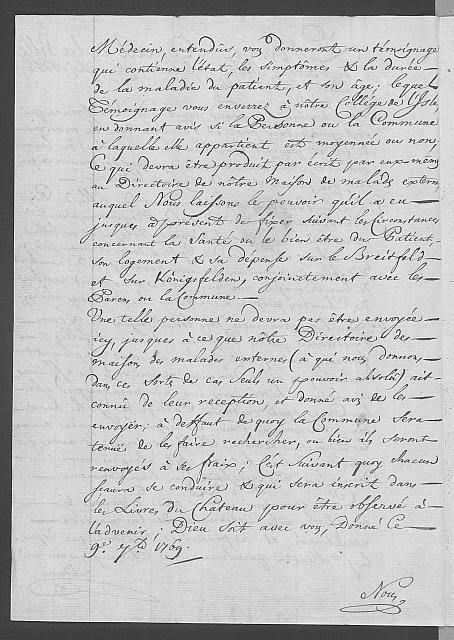 Médecin entendüs, vous donneront un témoignage
qui contienne l'état, les simptômes & la durée
de la maladie du patient, et son âge; lequel
Témoignage vous enverrez à nôtre Collège de l'Isle
en donnant avis si la Personne ou la Commune
à laquelle elle appartient est moyennée ou non
Ce qui devra être produit par écrit par eux-mêm
au Directoire de nôtre Maison de malads extern
auquel Nous laissons le pouvoir qu'il a eu
jusques apresent de fixer suivant les Circonstances
concernant la Santé ou le bien être du Patient,
son logement & sa depense sur le Breitfeld
et sur Königsfelden, conjoinctement avec les
Parens ou la Commune.
Une telle personne ne devra pas être envoyée
icy, jusques à ce que nôtre Directoire des
maisons des malades externes (à qui nous donnons
dans ces sorts de cas seuls un pouvoir absolu) ait
connü de leur reception et donné avis de les
envoyer; à deffaut de quoy la Commune sera
tenuë de les faire rechercher, ou bien ils seront
renvoyés à ses fraix; C'est suivant quoy chacun
scaura se conduire & qui sera inscrit dans
les Livres du Chateau pour être observé à
ladvenir. Dieu soit avec vous, Donné Ce
9e 1769.
Nous